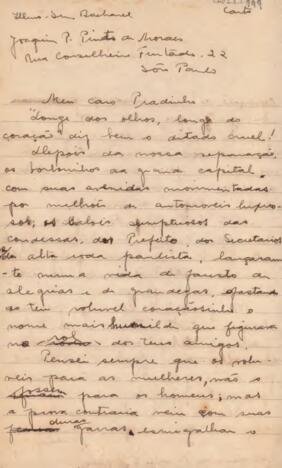 Illmo. Snr. Bacharel
Joaquim P. Pinto de Moraes
Rua Conselheiro Furtado. 22
São Paulo
Carta
Meu caro Pradinho
"Longe dos olhos, longe do
coração" diz bem o ditado cruel!
Depois da nossa separação,
os borborinhos da grande capital,
com suas avenidas movimentadas
por milhões de automoveis luxuo-
sos; os bailes sumptuosos das
condessas, do Prefeito, dos Secretarios
da alta roda paulista, lançaram-
te numa vida de fausto de
alegrias e de grandezas, afastando
do teu voluvel coraçãosinho o
nome mais humilde que figurava
no rol dos teus amigos.
Pensei sempre que os volu-
veis para as mulheres, não o
fossem para os homens; mas
a prova contraria veiu com suas
duras garras, esmigalhar o